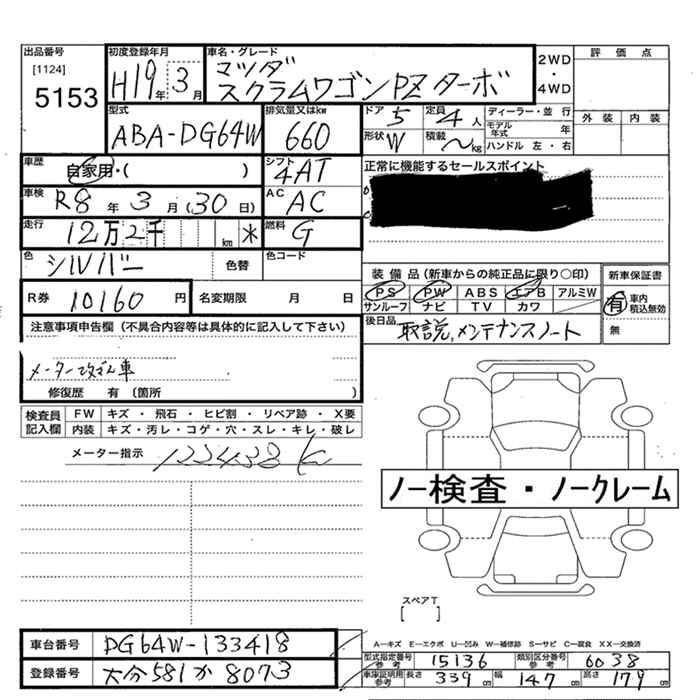 出品番号
[1124]
5153
初度登録年月
H19年 3月
車名・グレード
マツダ
スクラムワゴンPZターボ
2WD
・
4WD
評価点
外装 内装
型式
ABA-DG64W
排気量又はkw
660
ドア 5
定員 4人
形状 W
積載 〜kg
ディーラー・並行
モデル年式 年
ハンドル 左・右
車歴
自家用・( )
シフト
4AT
正常に機能するセールスポイント
車検
R8年 3月 (30日)
AC
AC
走行
12万2千 km *
燃料
G
色
シルバー
色替
色コード
R券 10160円
名変期限 月 日
装備品(新車からの純正品に限り○印)
PS PW ABS エアB アルミW
サンルーフ ナビ TV カワ
新車保証書
有 車内積込無効
無
後日品
取説,メンテナンスノート
注意事項申告欄(不具合内容等は具体的に記入して下さい)
メーター改ざん車
修復歴 有(箇所 )
検査員記入欄
FW キズ・飛石・ヒビ割・リペア跡・X要
内装 キズ・汚レ・コゲ・穴・スレ・キレ・破レ
メーター指示
122438 K
ノー検査・ノークレーム
スペアT
[ ]
A−キズ E−エクボ U−凹み W−補修跡 S−サビ C−腐食 XX−交換済
車台番号 DG64W-133418
登録番号 大分581か8073
型式指定番号参考 15136
類別区分番号参考 6038
車庫証明用参考 長さ 339cm 幅 147cm 高さ 179cm